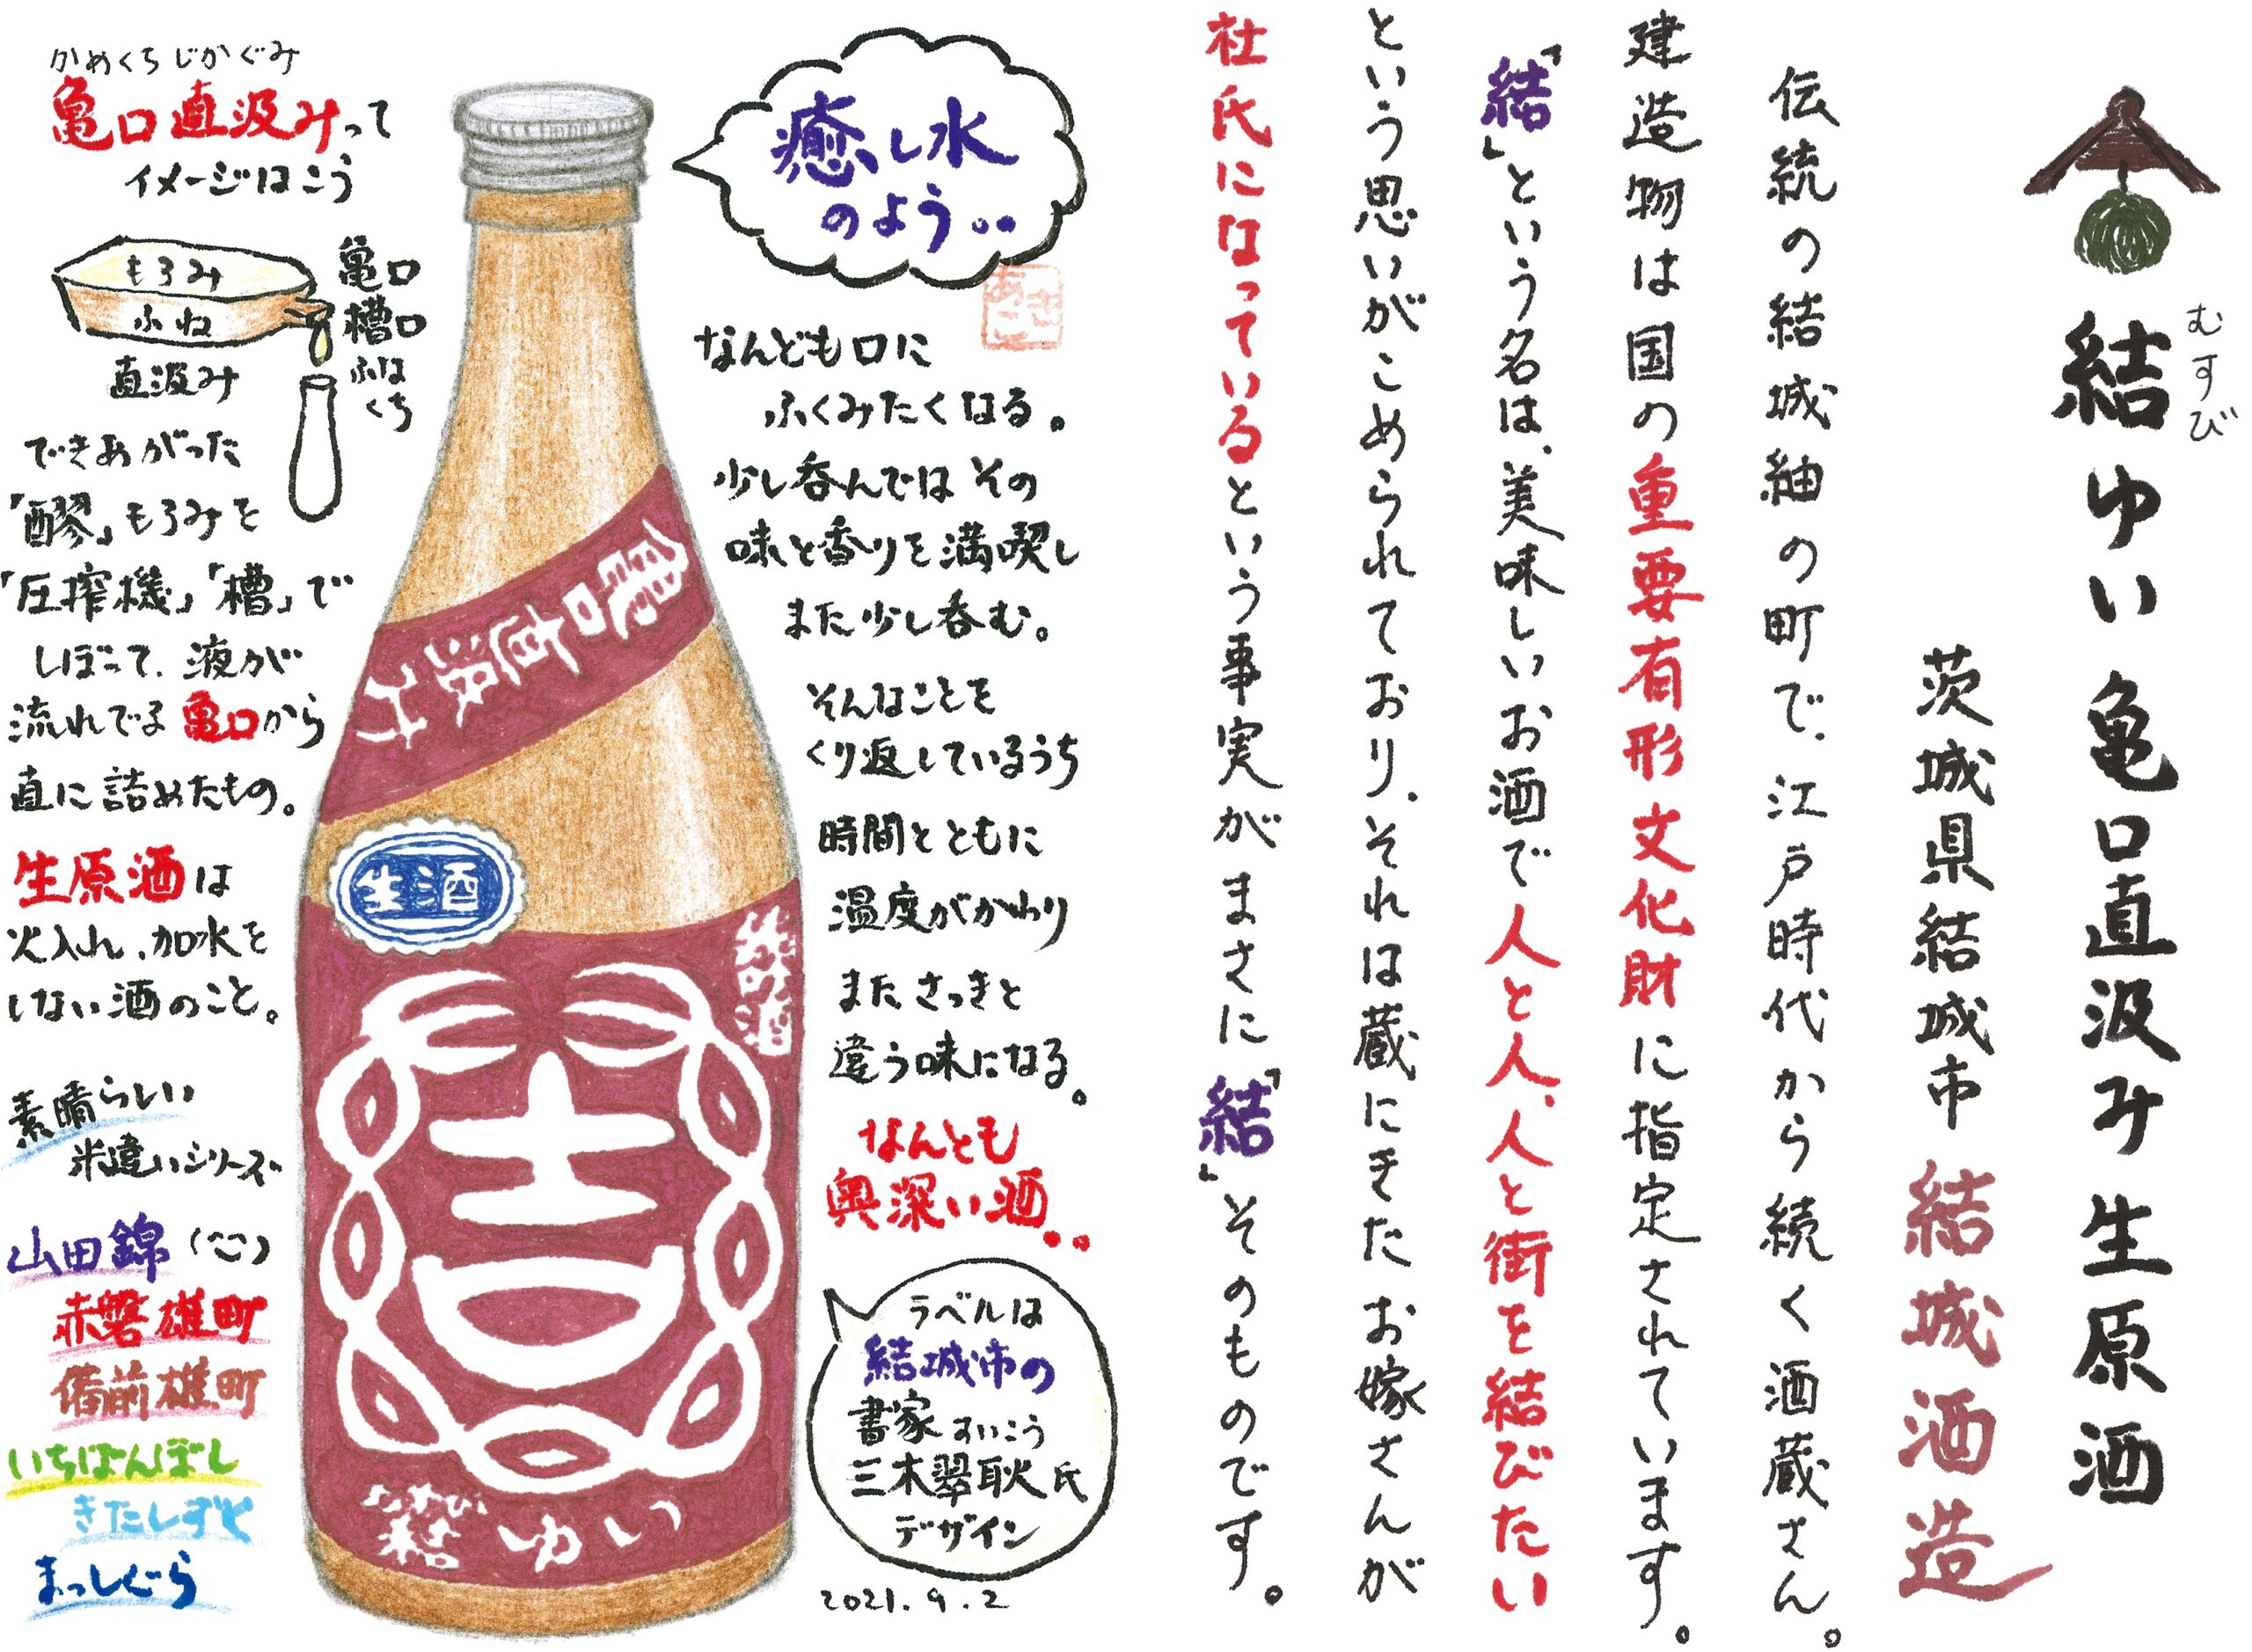 結ゆい 亀口直汲み 生原酒
むすび
茨城県結城市 結城酒造
伝統の結城紬の町で、江戸時代から続く酒蔵さん。
建造物は国の重要有形文化財に指定されています。
「結」という名は、美味しいお酒で人と人、人と街を結びたい
という思いがこめられており、それは蔵にきたお嫁さんが
杜氏になっているという事実がまさに「結」そのものです。
癒し水
のよう..
なんども口に
ふくみたくなる。
少し呑んではその
味と香りを満喫し
また少し呑む。
そんなことを
くり返しているうち
時間とともに
温度がかわり
またさっきと
違う味になる。
なんとも
奥深い酒..
ラベルは
結城市の
書家 すいこう
三木翠耿氏
デザイン
2021.9.2
亀口直汲み
生酒
結城酒造
むすび
結ゆい
かめくちじかぐみ
亀口直汲みって
イメージはこう
もろみ
ふね
亀口
槽口
ふな
くち
直汲み
できあがった
「醪」もろみを
「圧搾機」「槽」で
しぼって、液が
流れでる亀口から
直に詰めたもの。
生原酒は
火入れ、加水を
しない酒のこと。
素晴らしい
米違いシリーズ
山田錦(心)
赤磐雄町
備前雄町
いちばんぼし
きたしずく
まっしぐら